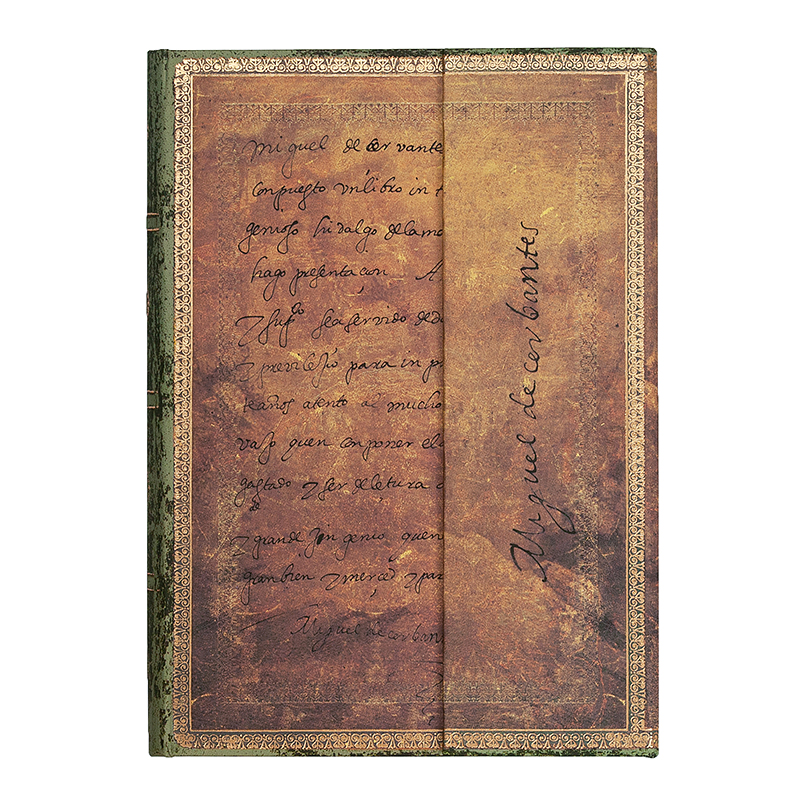 Miguel de cervante
conpuesto Vn libro in
genioso hidalgo de la ma
hago presentacion A
sea servido de d
y previlejio para in pr
te años atento al mucho
quen conponer el
gastado y ser de letura
y grande yngenio quen
gran bien y merced y par
Miguel de cerbant
Miguel de cerbantes